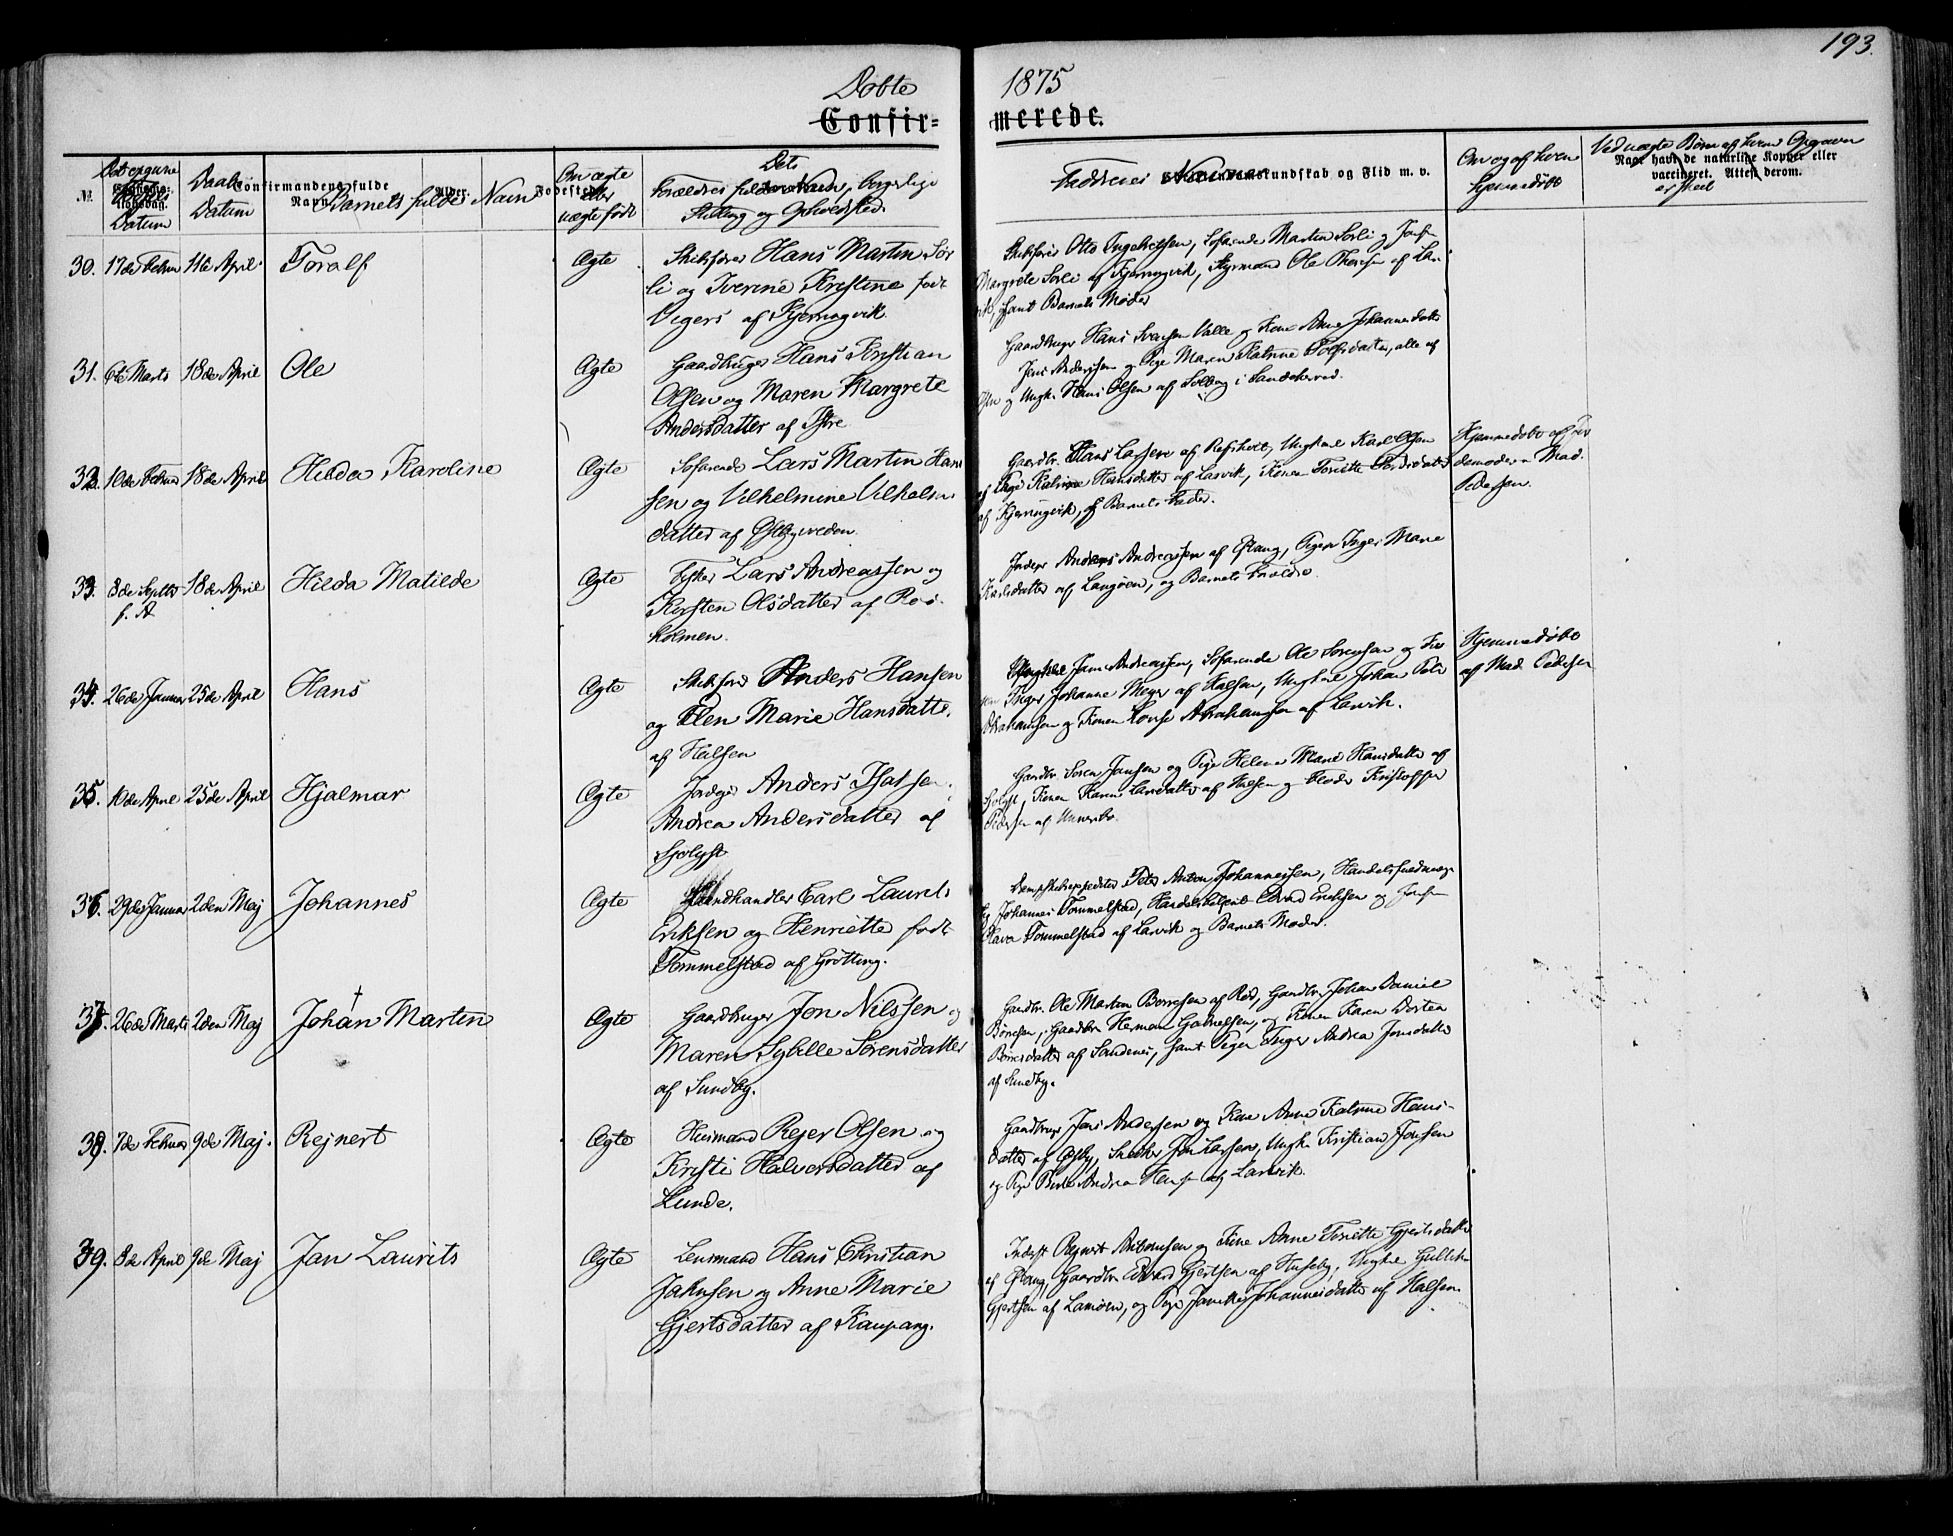 193.
Døbte 1875
Confirmerede.
№
Datum
Daabs Datum
Confirmandens fulde Navn.
Barnets fulde Navn
Alder.
Fødested
Om ægte eller uægte født
Forældres fulde Navn, borgerlige Stilling og Opholdssted.
Faddernes Navne
Kundskab og Flid m. v.
Om og af hvem hjemmedøbt
Ved uægte Børn af hvem Opgaven er skeet
Naar havt de naturlige Kopper eller vaccineret. Attest derom.
30. 17de Februar 11te April Toralf Ægte Skibsfører Hans Martin Sør
li og Iverine Kristine født
Vegers af Kjerringvik.
Skibsfører Otto Ingebretsen, Søfarende Martin Sørli og Jomfr
Margrete Sørli af Kjerringvik, Styrmand Ole Thersen af Lar
vik, samt Barnets Moder
31. 6te Marts 18de April Ole Ægte Gaardbruger Hans Kristian
Olsen og Maren Margrete
Andersdatter af Istre
Gaardbruger Hans Iversen Valle og Kone Anne Johannesdatter
Jens Anderssen og Pige Maren Katrine Tolfsdatter, alle af
og Ungk. Hans Olsen af Solberg i Sandeherred.
32. 10de Februar 18de April Hilda Karoline Ægte Søfarende Lars Martin Han
sen og Vilhelmine Vilhelms
datter af Østbysveden.
Gaardbr. Hans Larsen af Refsholt, Ungkarl Karl Olsen
og Pige Katrine Hansdatter af Larvik, Konen Toriette
af Kjerringvik, og Barnets Fader.
Hjemmedøbt af Jor
demoder Mad.
Pedersen.
33. 8de Septbr f. A. 18de April Hilda Matilde Ægte Fisker Lars Andreassen og
Kirsten Olsdatter af Rø
holmen.
Jordejer Anders Andreassen af Østang, Pigen Inger Marie
Karlsdatter af Langøen, og Barnets Forældre.
34. 26de Januar 25de April Hans Ægte Skibsfører Anders Hansen
og Elen Marie Hansdatter,
af Halsen
Ungkarl Jens Andreassen, Søfarende Ole Sørensen og Ko
nen Inger Johanne Meyer af Halsen, Ungkarl Johan Peter
Abrahamsen og Konen Lovise Abrahamsen af Larvik.
Hjemmedøbt
af Mad. Pedersen
35. 10de April 25de April Hjalmar Ægte Jordejer Anders Isaksen
Andrea Andersdatter af
Sjølyst
Gaardbr. Søren Jansen og Pige Helene Marie Hansdatter af
Sjølyst, Konen Karen Larsdatter af Halsen og Kristoffer
Pedersen af Unnerbo.
36. 29de Januar 2den Maj Johannes Ægte Handelsmand Carl Laurits
Eriksen og Henriette født
Tommelstad af Grøtting.
Dampskibsexpeditør Peter Anton Johannessen, Handelsfuldmæg
tig Johannes Tommelstad, Handelsbetjent Edvard Eriksen og Jomfr
Tommelstad af Larvik og Barnets Moder.
37. 26de Marts 2den Maj Johan † Martin Ægte Gaardbruger Jon Nilssen og
Maren Sybille Sørensdatter
af Sundby.
Gaardbr. Ole Martin Børresen af Rød, Gaardbr. Johan Daniel
Børresen, Gaardbr Herman Gabrielsen, og Konen Karen Dortea
Børresdatter af Sandenes, samt Pigen Inger Andrea Jonsdatter
af Sundby.
38. 7de Februar 9de Maj. Rejnert Ægte Husmand Rejer Olsen og
Kristi Halvorsdatter af
Lunde.
Gaardbruger Jens Andersen og Kone Anne Katrine Hans-
datter af Østby, Snedker Jon Larsen, Ungk. Kristian Jonsen
og Pige Berte Andrea af Larvik.
39. 8de April 9de Maj Jan Laurits Ægte Lensmand Hans Christian
Jahnsen og Anne Marie
Gjertsdatter af Kaupang.
Inderst Rejnert Antonsen og Kone Anne Toriette Gjertsdatter
af Østang, Gaardbr Edvard Gjertsen af Huseby, Ungkarl Gullik
Gjertsen af Lamøen, og Pige Janette Johannesdatter af Halsen.